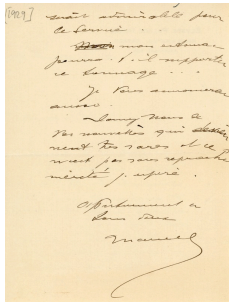 [1929]
serait admirable pour
le Service...
mon estomac
pourra-t-il supporter
ce tonnage...
Je vous annoncerai
aussi.
Donnez nous de
vos nouvelles qui
nent très rares et ce
n'est pas sans reproche
mérité j'espère.
Affectueusement à
tous deux